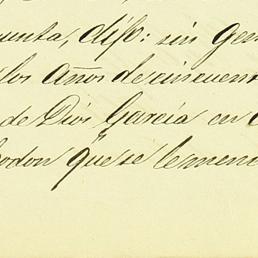 unta, dijo: sin gen
los años de cincuen
de Dios García en
odon que se le menc